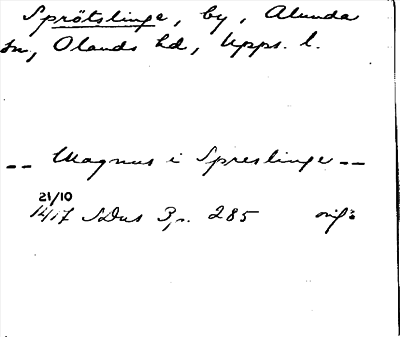 Sprötslinge, by, Alunda
sn, Olands hd, Upps. l.
-- Magnus i Spreslinge --
21/10
1417 SDns 3, s. 285 orig: